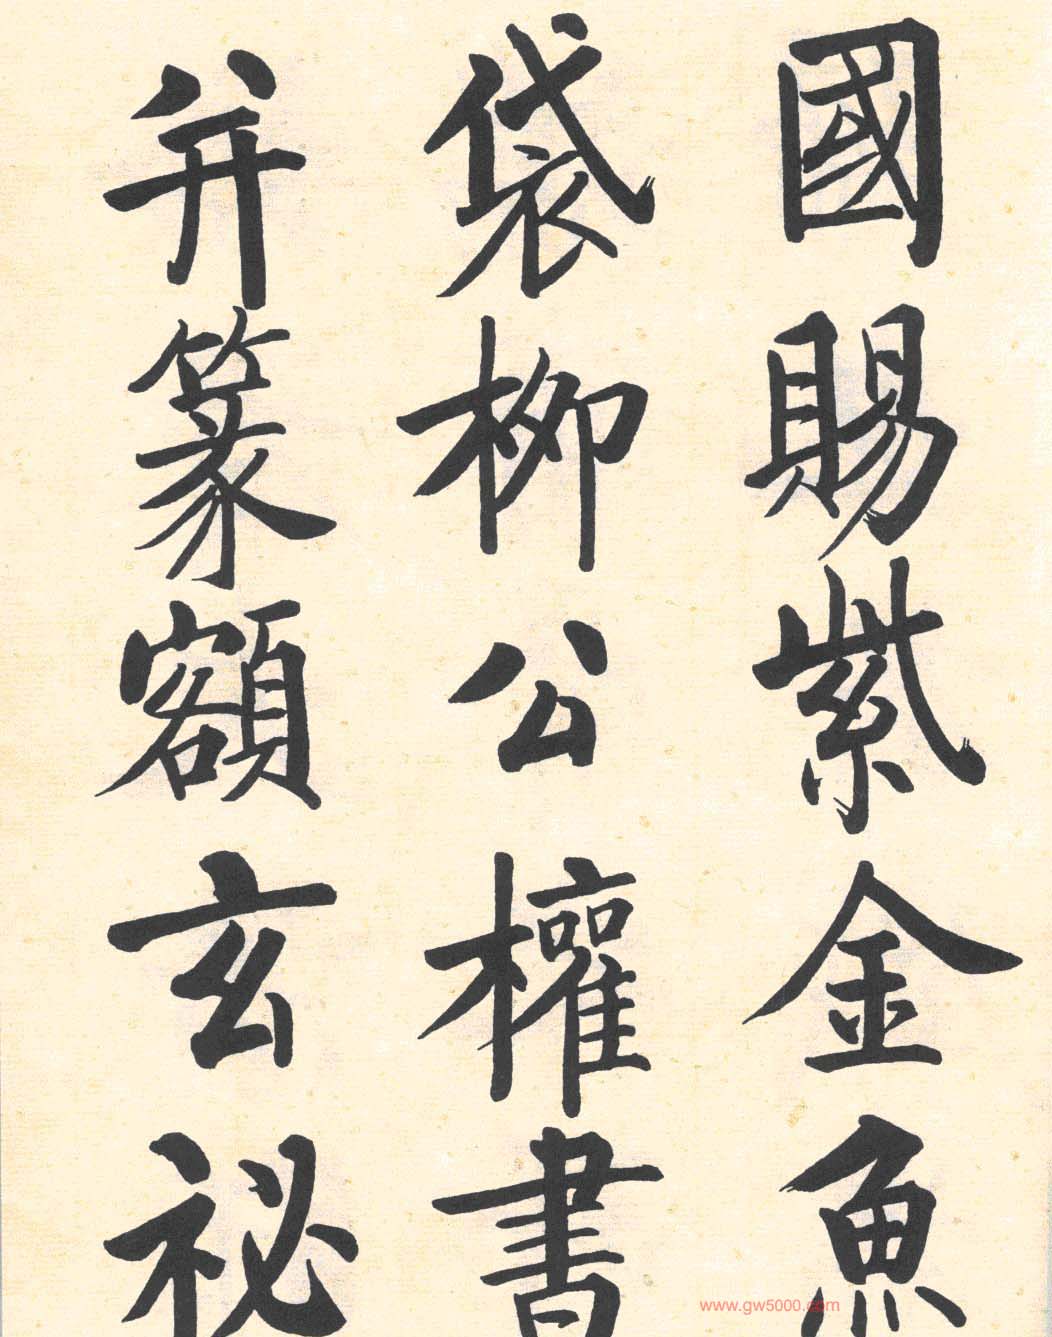 國賜紫金魚
袋柳公權書
并篆額玄祕
www.gw5000.com